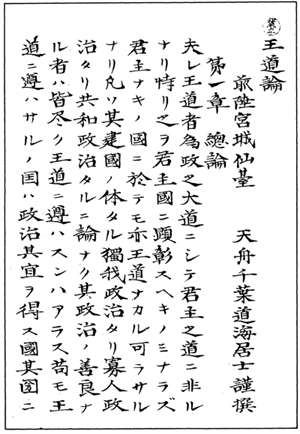 王道論
前陸宮城仙臺　天舟千葉道海居士謹撰
第一章　總論
夫レ王道者為政之大道ニシテ君主之道ニ非ル
ナリ特リ之ヲ君主國ニ顕彰スヘキノミナラズ
君主ナキノ國ニ於テモ亦王道ナカル可ラサル
ナリ凡ソ其建國ノ体タル獨裁政治タリ寡人政
治タリ共和政治タルニ論ナク其政治ノ善良ナ
ル者ハ皆尽ク王道ニ遵ハスンハアラス苟モ王
道ニ遵ハサルノ国ハ政治其宜ヲ得ス國其圀ニ